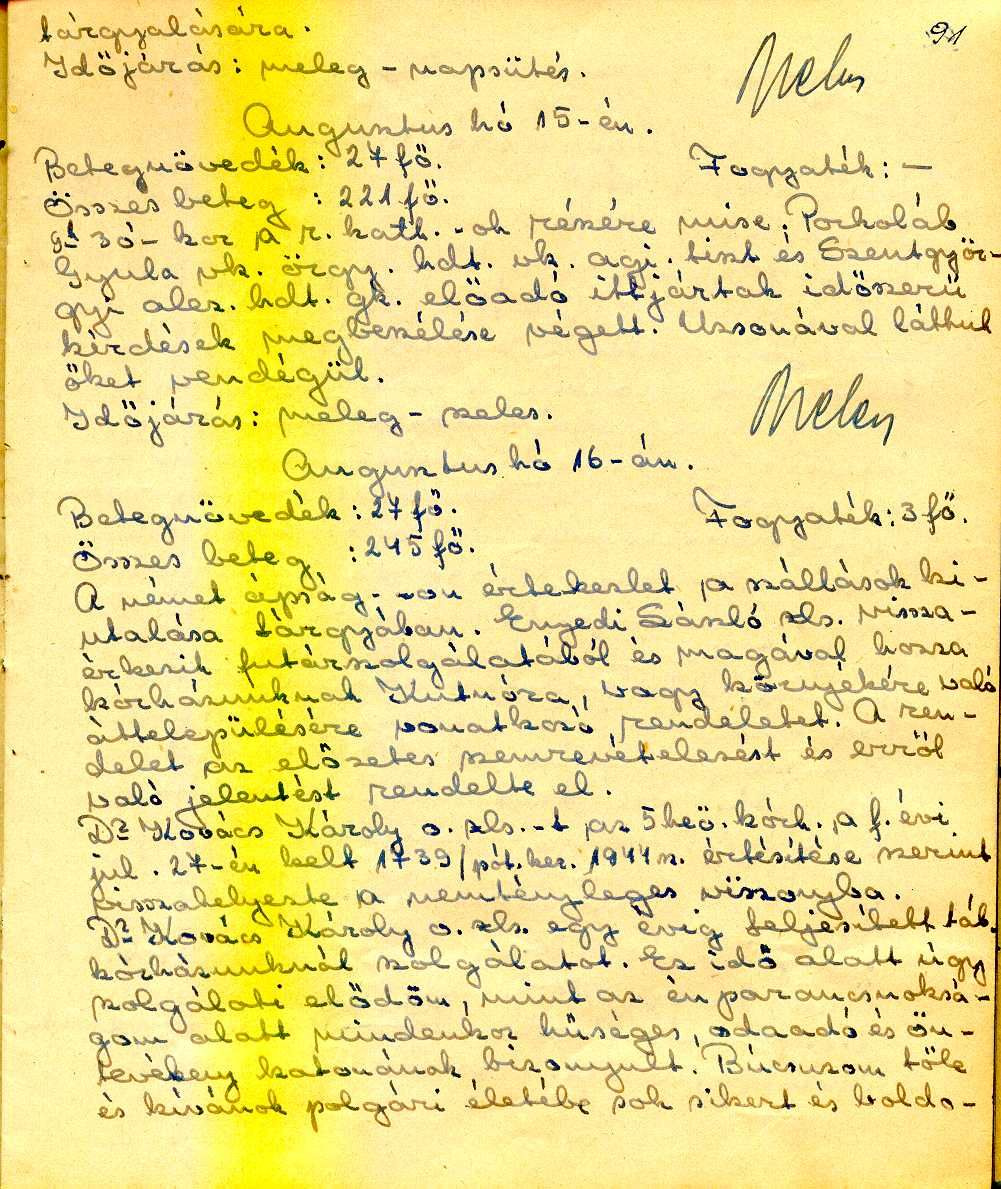 91
tárgyalására.
Időjárás: meleg - napsütés.
Augusztus hó 15-én.
Betegnövedék: 27 fő. Fogyaték: —
Összes beteg : 221 fő.
30-kor a r. kath.-ok részére mise. Porkoláb
Gyula vk. őrgy. hdt. vk. agi. tiszt és Szentgyör-
gyi alez. hdt. gk. előadó ittjártak időszerű
kérdések megbeszélése végett. Uzsonával láttuk
őket vendégül.
Időjárás: meleg - szeles.
Augusztus hó 16-án.
Betegnövedék: 27 fő. Fogyaték: 3 fő.
Összes beteg : 245 fő.
A német ápság.-on értekezlet a szállások ki-
utalása tárgyában. Enyedi László zls. vissza-
érkezik futárszolgálatából és magával hozza
kórházunknak Kutnóra, vagy környékére való
áttelepülésére vonatkozó rendeletet. A ren-
delet az előzetes szemrevételezést és erről
való jelentést rendelte el.
Dr Kovács Károly o. zls.-t az 5 heö. kórh. a f. évi
jul. 27-én kelt 1739/pót. ker. 1944 sz. értésítése szerint
visszahelyezte a nemtényleges viszonyba.
Dr Kovács Károly o. zls. egy évig teljesített táb.
kórházunknál szolgálatot. Ez idő alatt úgy
szolgálati elődöm, mint az én parancsnoksá-
gom alatt mindenkor hűséges, odaadó és ön-
tevékeny katonának bizonyult. Búcsuzom tőle
és kívánok polgári életébe sok sikert és boldo-